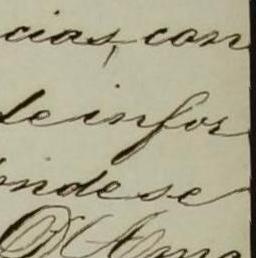 cias, con
de infor
onde se